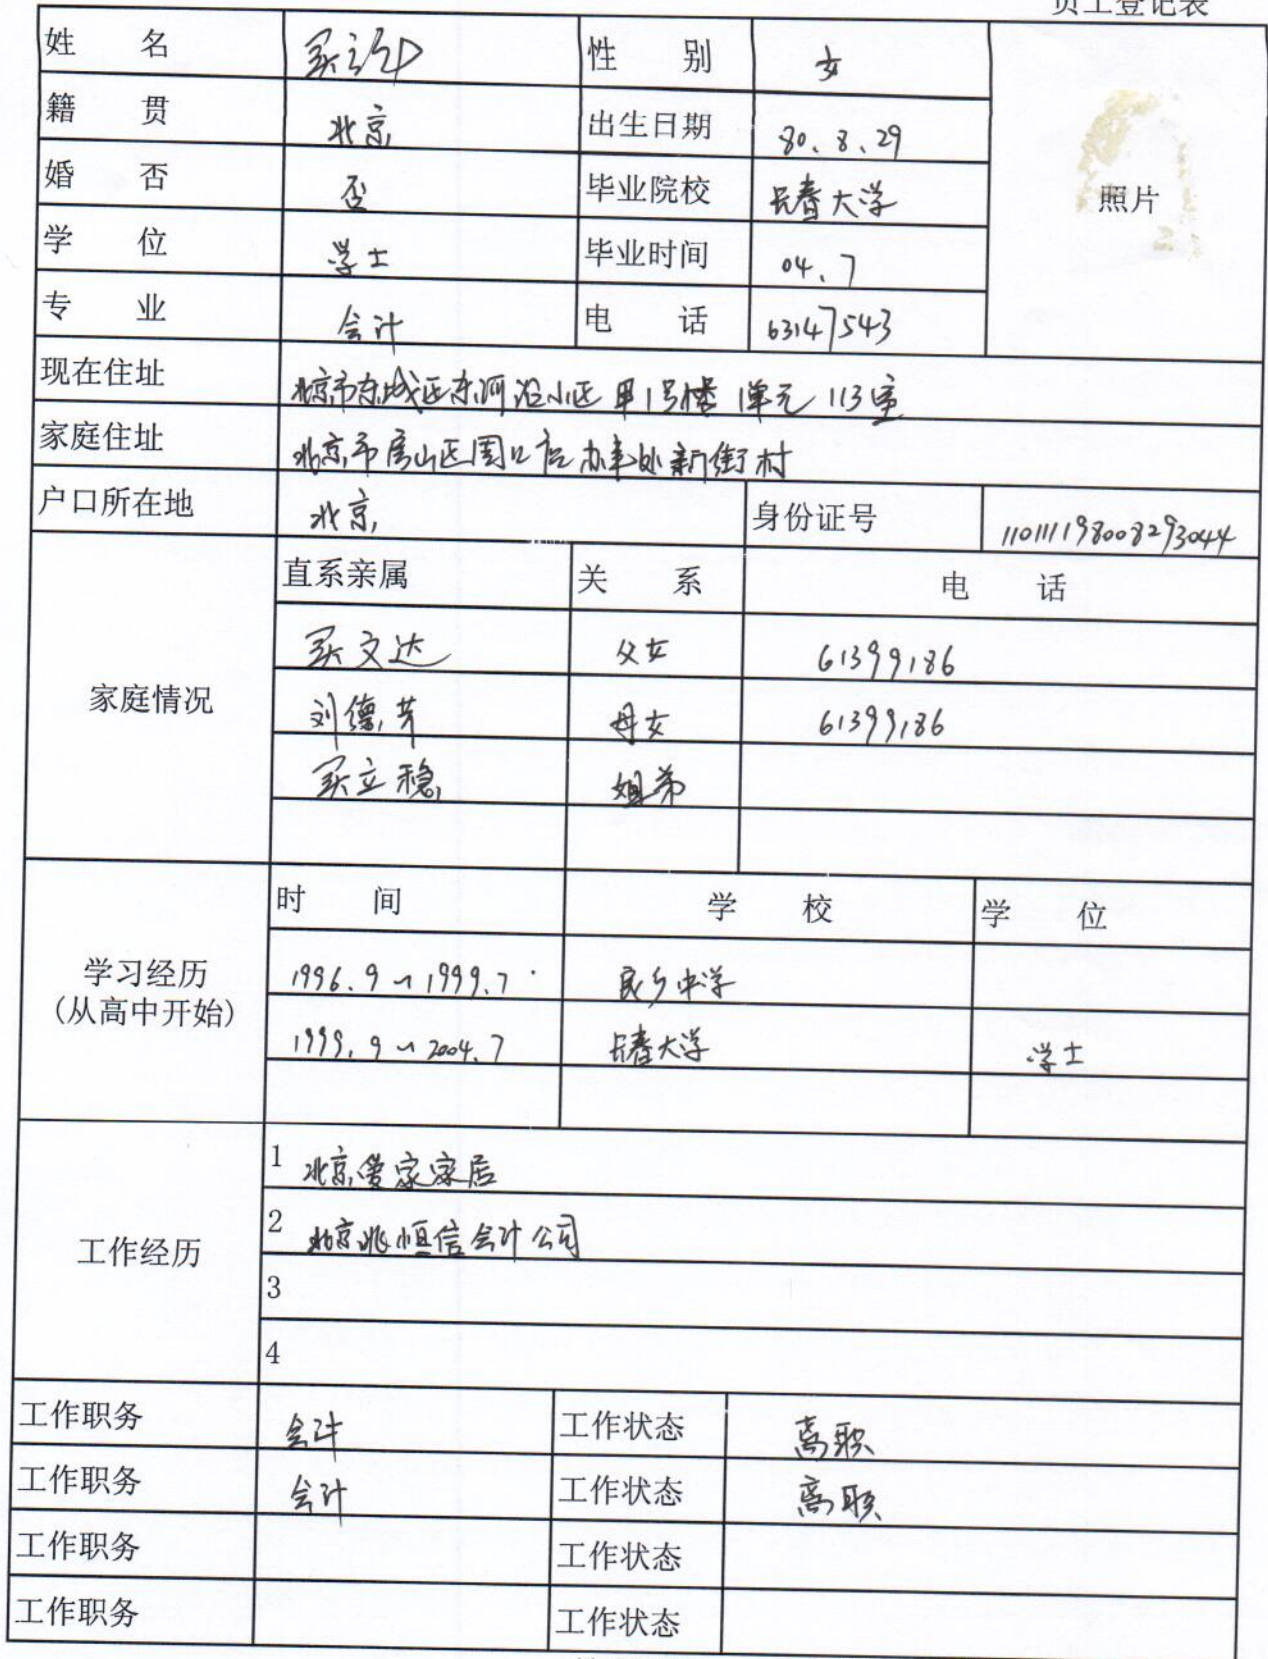 员工登记表
姓 名 性 别 女
籍 贯 北京 出生日期 80.8.29
婚 否 否 毕业院校 长春大学 照片
学 位 学士 毕业时间 04.7
专 业 会计 电 话 63147543
现在住址 北京市东城区东河沿小区甲1号楼1单元113室
家庭住址 北京市房山区周口店办事处新街村
户口所在地 北京 身份证号 110111198008293044
直系亲属 关 系 电 话
文达 父女 61399186
家庭情况 刘德芳 母女 61399186
立稳 姐弟
时 间 学 校 学 位
学习经历 1996.9~1999.7 良乡中学
(从高中开始)
1999.9~2004.7 长春大学 学士
1 北京爱家家居
2 北京兆恒信会计公司
工作经历
3
4
工作职务 会计 工作状态 离职
工作职务 会计 工作状态 离职
工作职务 工作状态
工作职务 工作状态